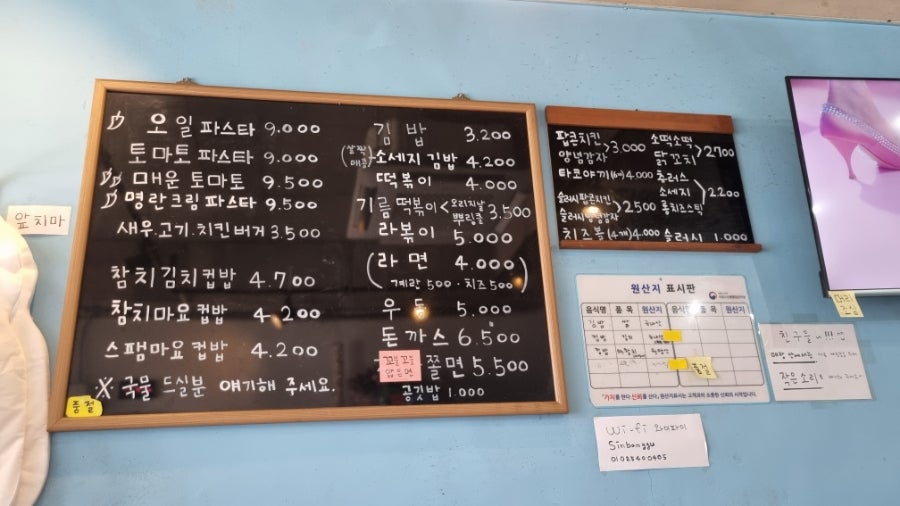 오일파스타 9.000
토마토 파스타 9.000
매운 토마토 9.500
명란크림파스타 9.500
새우.고기.치킨버거 3.500
참치김치컵밥 4.700
참치마요컵밥 4.200
스팸마요컵밥 4.200
※ 국물 드실분 얘기해 주세요.
품절
김밥 3.200
(살짝매콤) 소세지 김밥 4.200
떡볶이 4.000
기름떡볶이 < 오리지날 뿌링클 3.500
라볶이 5.000
(라면 4.000
계란 500 · 치즈 500)
우동 5.000
돈까스 6.500
쫄면 5.500
공깃밥 1.000
앞치마
팝콘치킨
양념감자 > 3.000
타코야끼(6개) 4.000
슬러시팝콘치킨
슬러시양념감자 > 2500
치즈볼 (4개) 4.000
소떡소떡
닭꼬치 > 2700
츄러스
소세지
롱치즈스틱 > 2200
슬러시 1.000
원산지 표시판
음식명 품목 원산지 음식 품목 원산지
김밥 쌀
김밥
품절
"가치를 판다 신뢰를 산다"
Wi-fi 와이파이
Sinbanggu
친구들아!!!
작은소리로